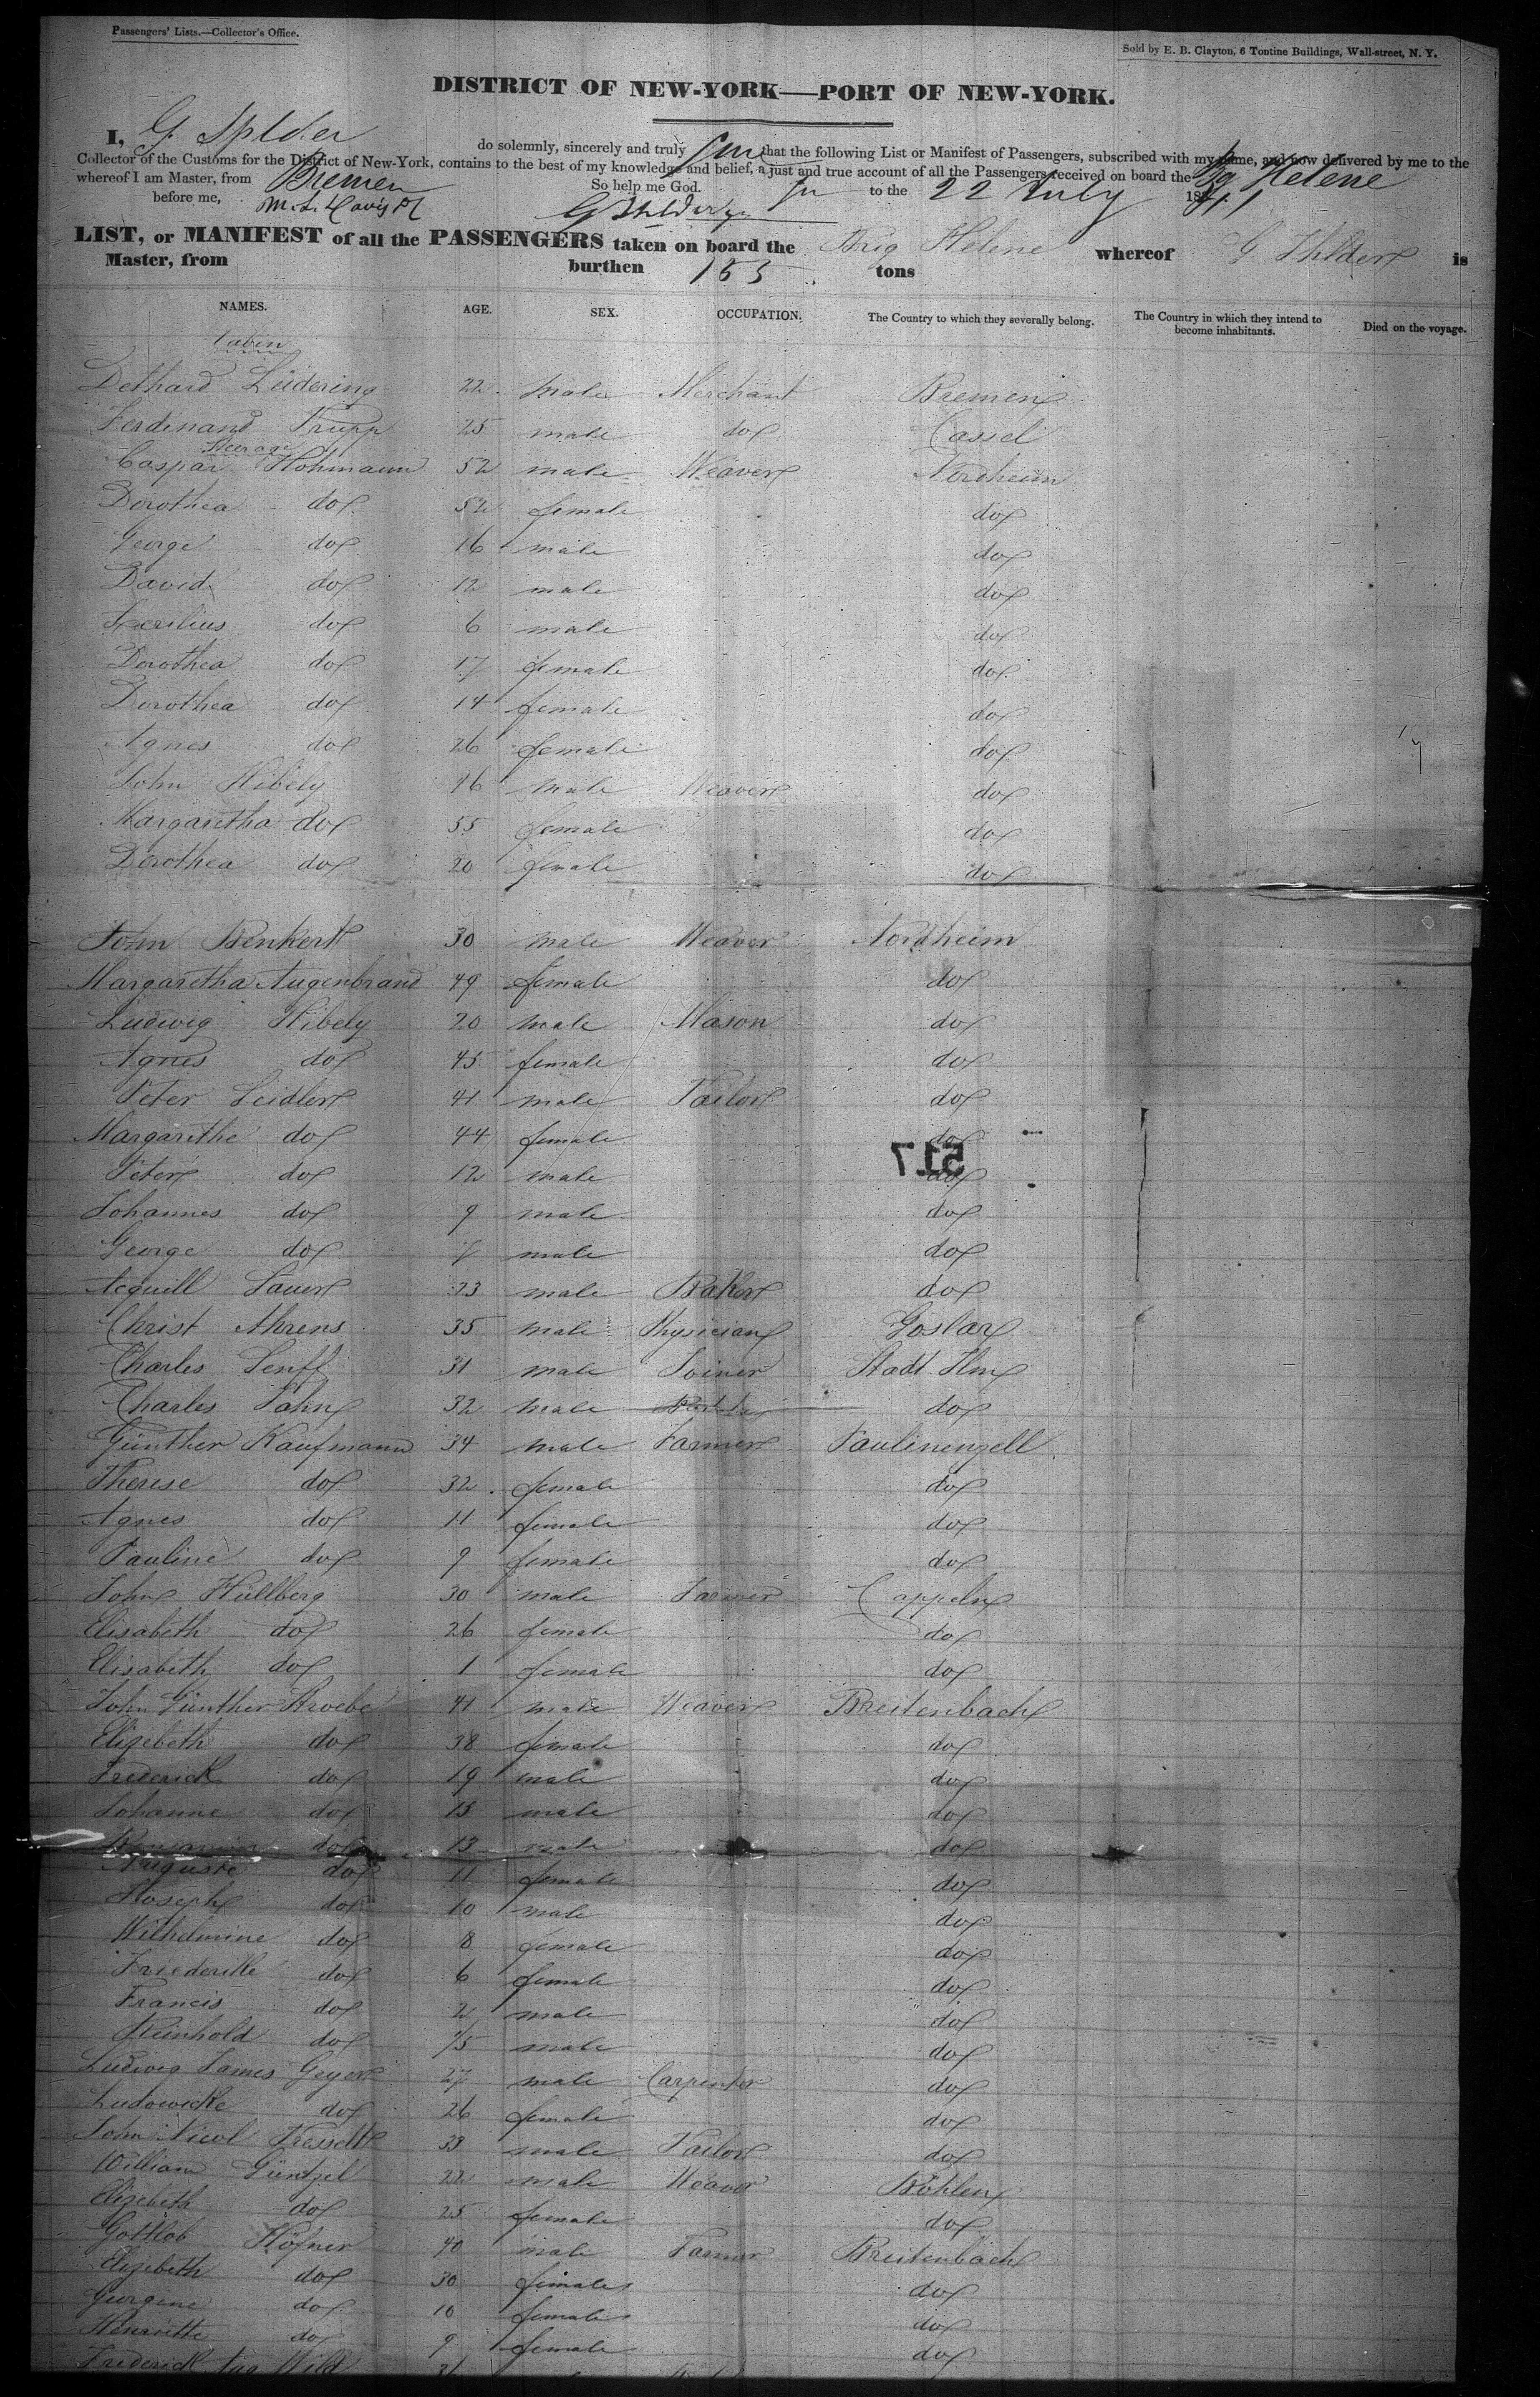 Passengers' Lists.—Collector's Office.
Sold by E. B. Clayton, 6 Tontine Buildings, Wall-street, N. Y.
DISTRICT OF NEW-YORK—PORT OF NEW-YORK.
I, G. do solemnly, sincerely and truly that the following List or Manifest of Passengers, subscribed with my name, and now delivered by me to the
Collector of the Customs for the District of New-York, contains to the best of my knowledge and belief, a just and true account of all the Passengers received on board the Bg Helene
whereof I am Master, from Bremen So help me God. to the 22 July 1841
before me,
LIST, or MANIFEST of all the PASSENGERS taken on board the Brig Helene whereof G is
Master, from burthen 155 tons
NAMES. AGE. SEX. OCCUPATION. The Country to which they severally belong. The Country in which they intend to become inhabitants. Died on the voyage.
Cabin
Dethard Lüdering 22 male Merchant Bremen
Ferdinand Trupp 25 male do Cassel
Steerage
Caspar Hohmann 52 male Weaver Nordheim
Dorothea do 52 female do
George do 16 male do
David do 12 male do
do 6 male do
Dorothea do 17 female do
Dorothea do 14 female do
Agnes do 26 female do
John Hibely 16 male Weaver do
Margaretha do 55 female do
Dorothea do 20 female do
John Benkert 30 male Weaver Nordheim
Margaretha Augenbrand 49 female do
Ludwig Hibely 20 male Mason do
Agnes do 45 female do
Peter Seidler 41 male Tailor do
Margarethe do 44 female do
517
Peter do 12 male do
Johannes do 9 male do
George do 7 male do
Sauer 23 male Baker do
Christ Ahrens 35 male Physician Goslar
Charles Senff 31 male Joiner Stadt Ilm
Charles Jahn 32 male do
Günther Kaufmann 34 male Farmer Paulinenzell
Therese do 32 female do
Agnes do 11 female do
Pauline do 9 female do
John Hüllberg 30 male Farmer Cappeln
Elisabeth do 26 female do
Elisabeth do 1 female do
John Günther Stroebe 41 male Weaver Breitenbach
Elizebeth do 38 female do
Frederick do 19 male do
Johanne do 15 male do
Benjamin do 13 male do
Auguste do 11 female do
Joseph do 10 male do
Wilhelmine do 8 female do
Friederike do 6 female do
Francis do 2 male do
Reinhold do male do
Ludwig James Geyer 27 male Carpenter do
Ludowicke do 26 female do
John Nicol 33 male Tailor do
William Güntzel 22 male Weaver Böhlen
Elizebeth do 25 female do
Gottlob Höfner 40 male Farmer Breitenbach
Elizebeth do 30 female do
Georgine do 10 female do
Henriette do 9 female do
Frederick Wild